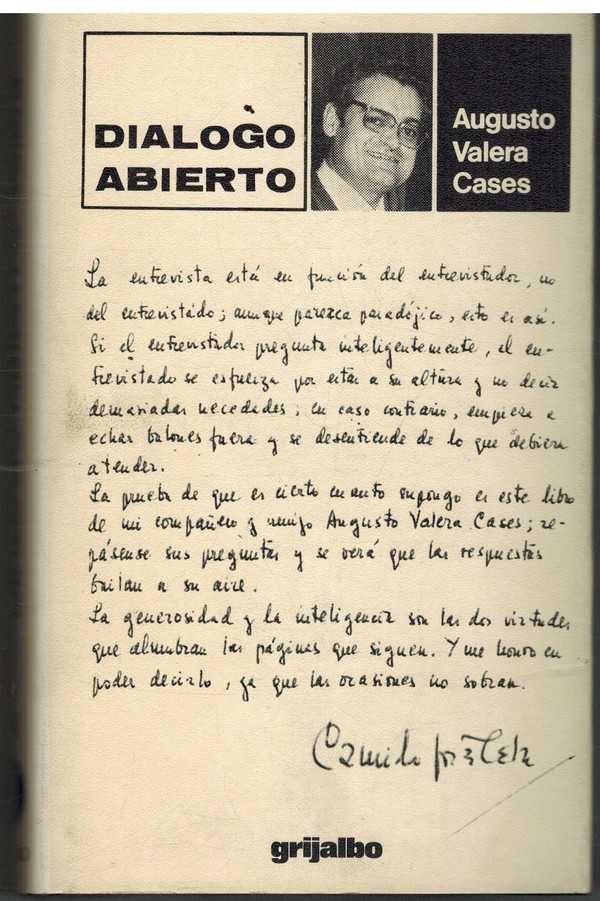 DIALOGO
ABIERTO
Augusto
Valera
Cases
La entrevista está en función del entrevistador, no
del entrevistado; aunque parezca paradójico, esto es así.
Si el entrevistador pregunta inteligentemente, el en-
trevistado se esfuerza por estar a su altura y no decir
demasiadas necedades; en caso contrario, empieza a
echar balones fuera y se desentiende de lo que debiera
atender.
La prueba de que es cierto cuanto supongo es este libro
de mi compañero y amigo Augusto Valera Cases; re-
pásense sus preguntas y se verá que las respuestas
bailan a su aire.
La generosidad y la inteligencia son las dos virtudes
que alumbran las páginas que siguen. Y me honro en
poder decirlo, ya que las ocasiones no sobran.
Camilo José Cela
grijalbo